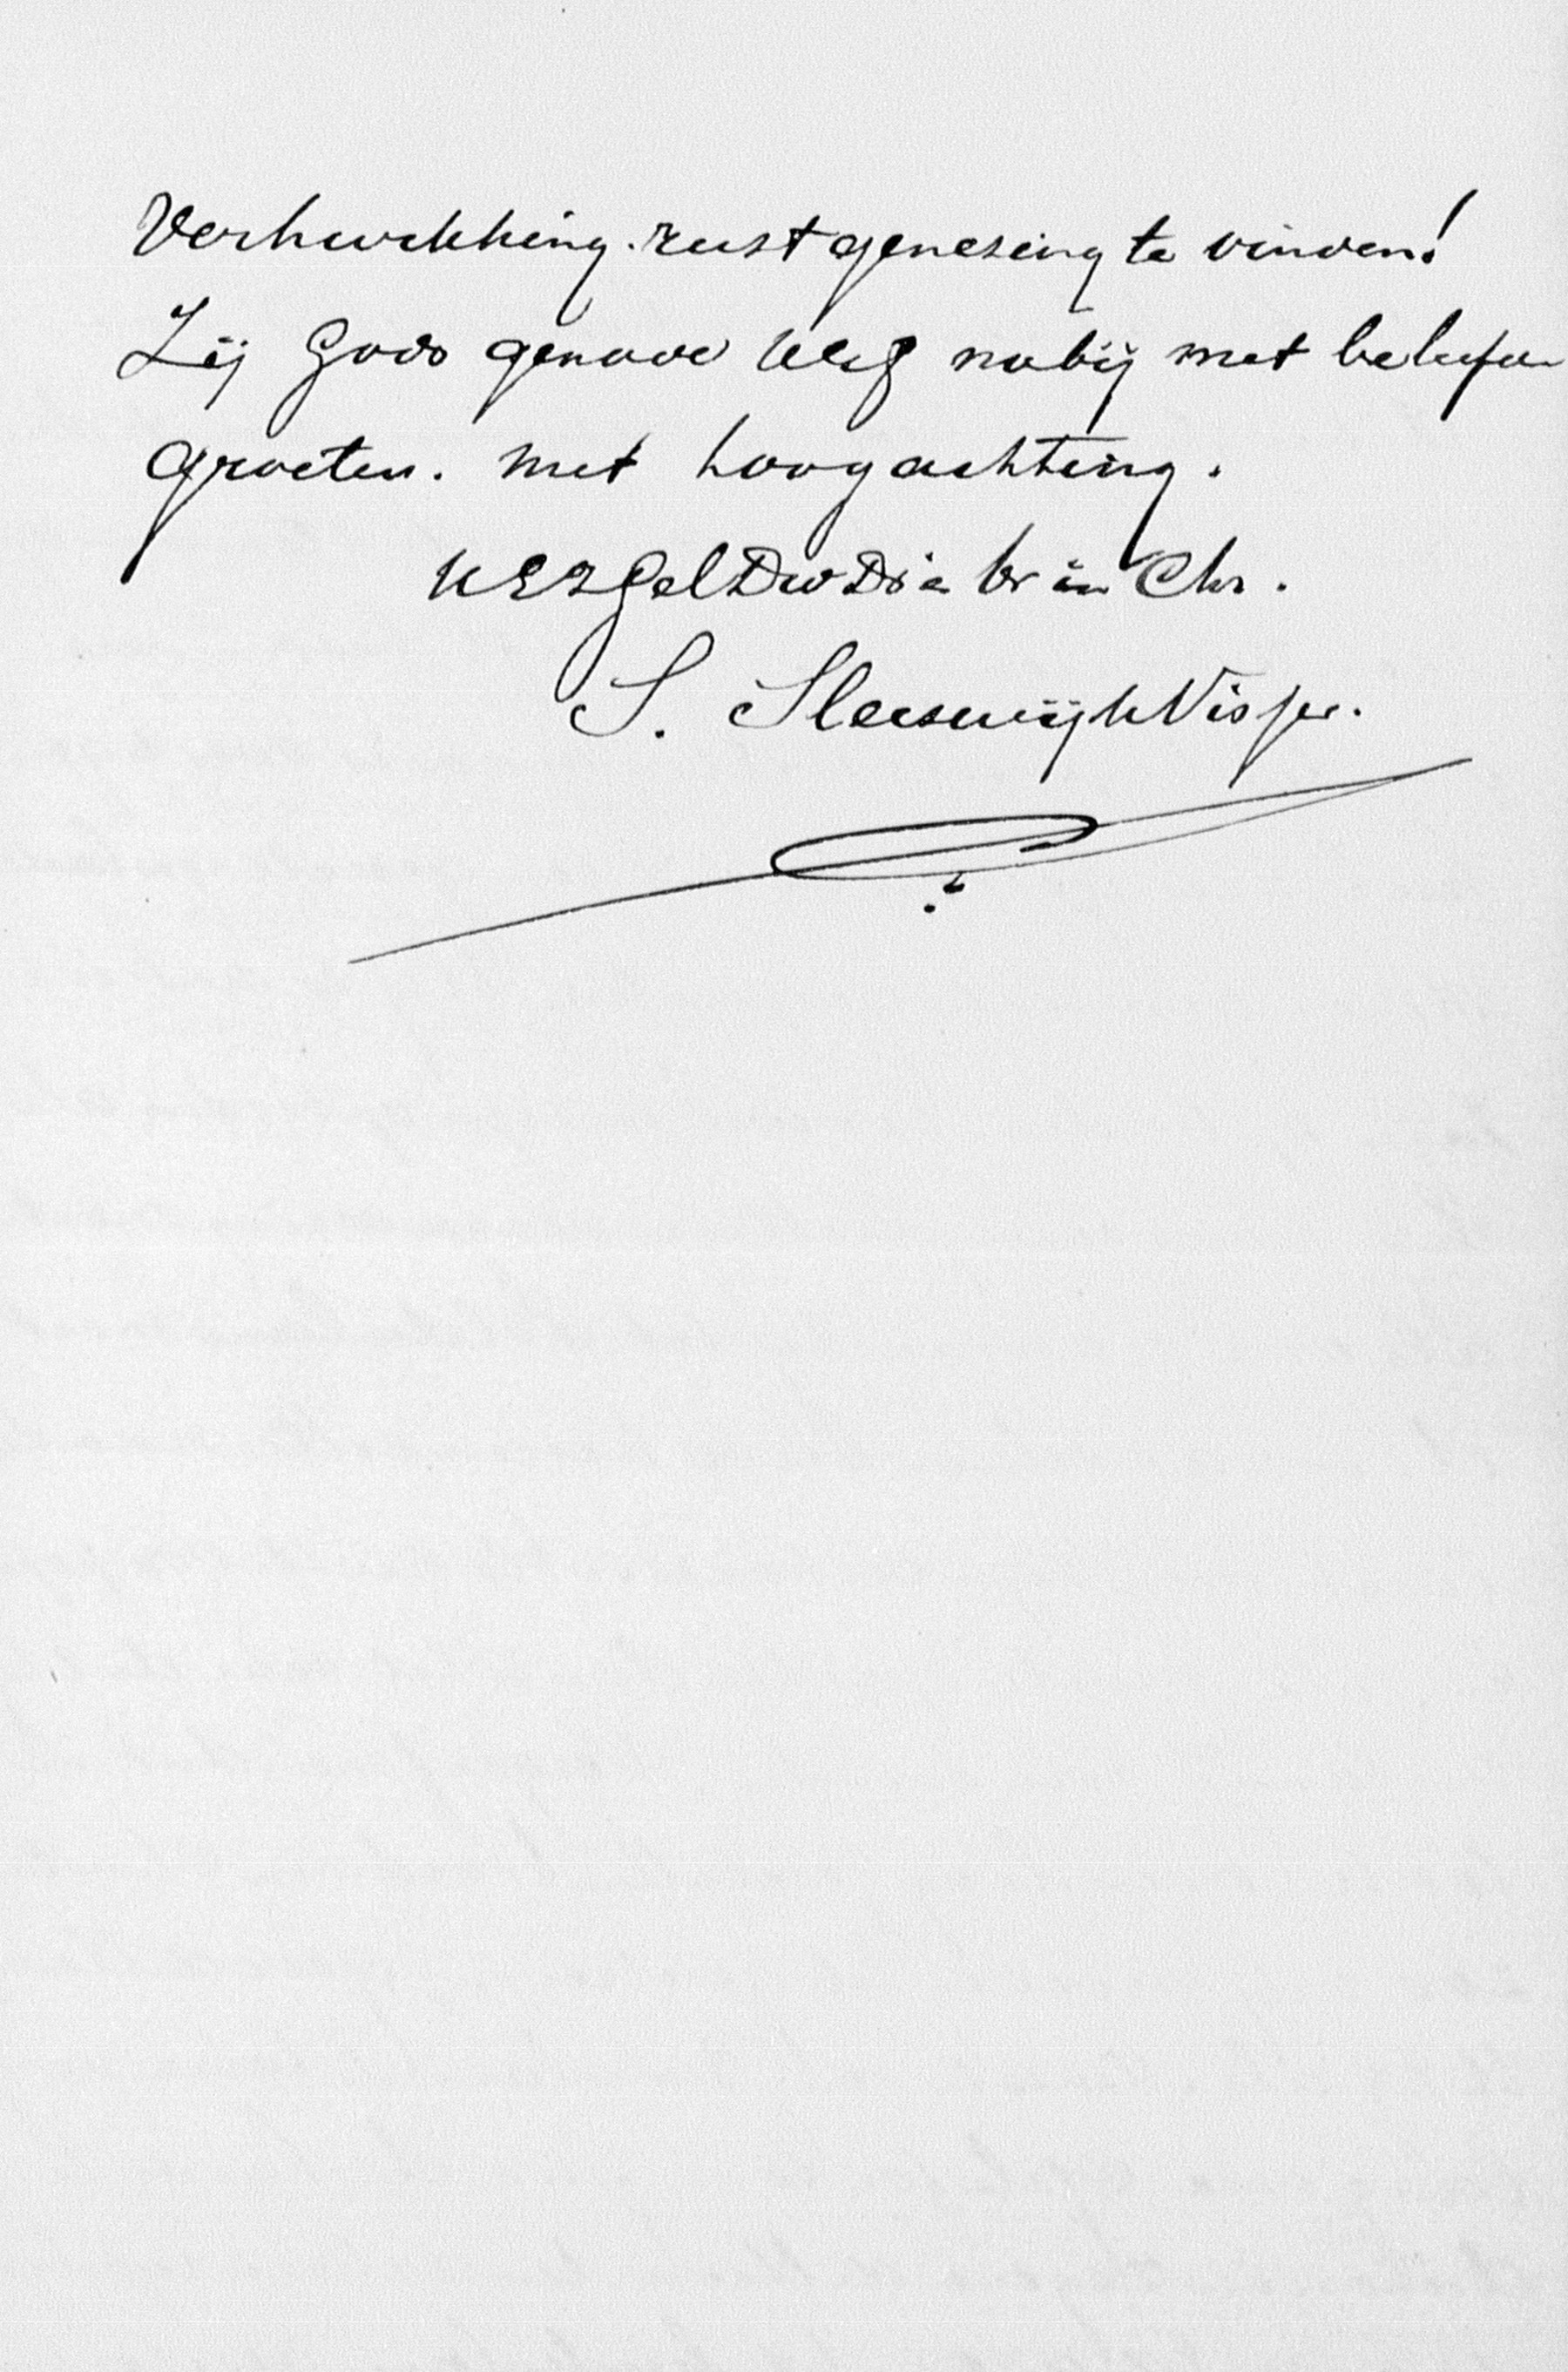 Verkwikking. rust genezing te vinden!
Zij Gods genade UEG nabij met beleefde
groeten. Met hoogachting.
UEZGel Dw Die br in Chr.
S. Sleeswijk Visser.